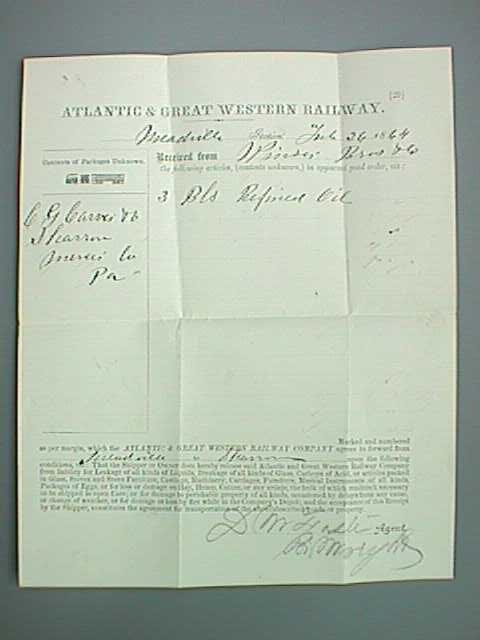 [29]
ATLANTIC & GREAT WESTERN RAILWAY.
Meadville Station Feb 26 1864
Contents of Packages Unknown.
Received from Bros & Co
the following articles, (contents unknown,) in apparent good order, viz:
3 Bls Refined Oil
C G Carver & Co
Sharron
Mercer Co
Pa
Marked and numbered
as per margin, which the ATLANTIC & GREAT WESTERN RAILWAY COMPANY agrees to forward from
Meadville to Sharron upon the following
conditions, That the Shipper or Owner does hereby release said Atlantic and Great Western Railway Company
from liability for Leakage of all kinds of Liquids, Breakage of all kinds of Glass, Carboys of Acid, or articles packed
in Glass, Stoves and Stove Furniture, Castings, Machinery, Carriages, Furniture, Musical Instruments of all kinds,
Packages of Eggs, or for loss or damage on Hay, Hemp, Cotton, or any article the bulk of which renders it necessary
to be shipped in open Cars; or for damage to perishable property of all kinds, occasioned by delays from any cause,
or change of weather, or for damage or loss by fire while in the Company's Depots; and the acceptance of this Receipt
by the Shipper, constitutes the agreement for transportation of the property.
Agent